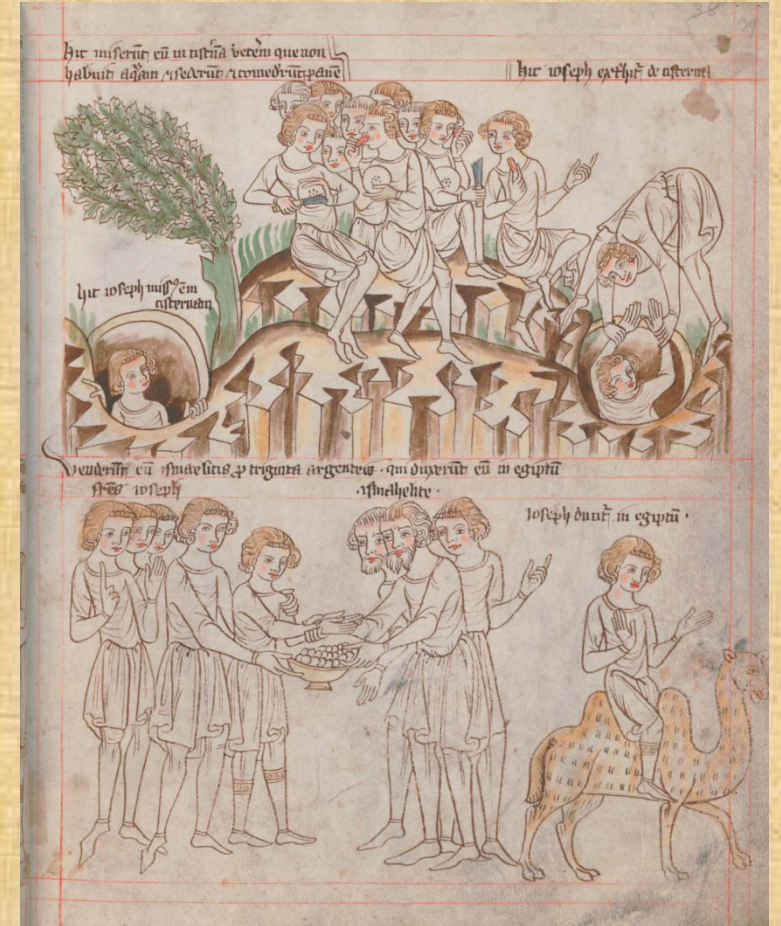 hic miserūt eū in cisternā veterē que non
habuit aquam & sederūt & comederūt panē
hic ioseph exthitur de cisterna
hic ioseph missus em
cisternam
Venderūt eū ismaelitis p triginta argenteis · qui duxerūt eū in egiptū
frēs ioseph
ismahelite ·
Ioseph ducitur in egiptū ·